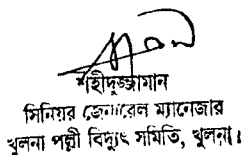 শহীদুজ্জামান
সিনিয়র জেনারেল ম্যানেজার
খুলনা পল্লী বিদ্যুৎ সমিতি, খুলনা।